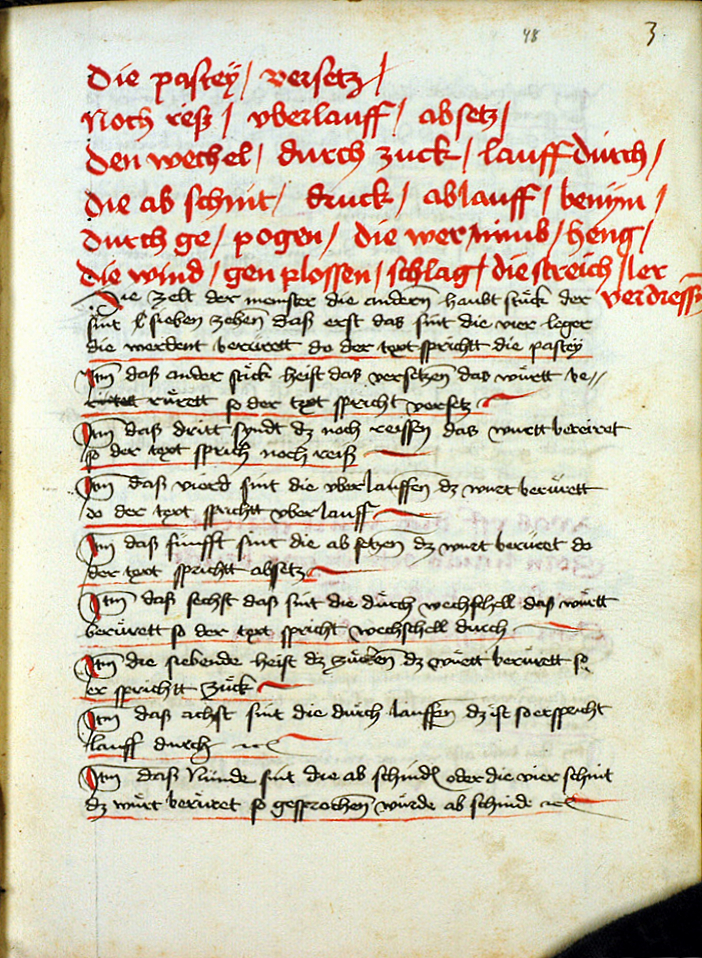 48 3
die pastey / versetz /
Noch reiß / vberlauff / absetz /
den wechel / durch zuck / lauff durch /
die ab schnit / druck / ablauff / benym /
durch ge / pogen / die wer nimb / heng /
die wind / gen plossen / schlag / die streich / ler
verdressß
Die zelt der meinster die anderen haubt stück der
sint sieben zehen daß erst das sint die vier leger
die werdent berürett do der txt sprichtt die pastey
Itm daß ander stück heist das versetzen das württ be//
rürett so der txt spricht versetz
Itm daß dritt syndt dz noch reissen das wurtt bereiret
so der text sprich noch reiß
Itm daß vierd sint die vberlauffen dz wurt berürett
do der txt sprichtt vberlauff
Itm daß fünfft sint die ab setzen dz wurt berüret do
der txt sprichtt absetz
Itm daß sechst daß sint die dürch wechslhell das württ
berürett so der txt spricht wechschell durch
Itm die siebende heist dz zücken dz württ berürett so
er sprichtt zück
Itm daß achst sint die dürch lauffen dz ist so er spricht
lauff durch
Itm daß Nünde sint die ab schind oder die vier schint
dz würt berüret so gesprochen würde ab schinde